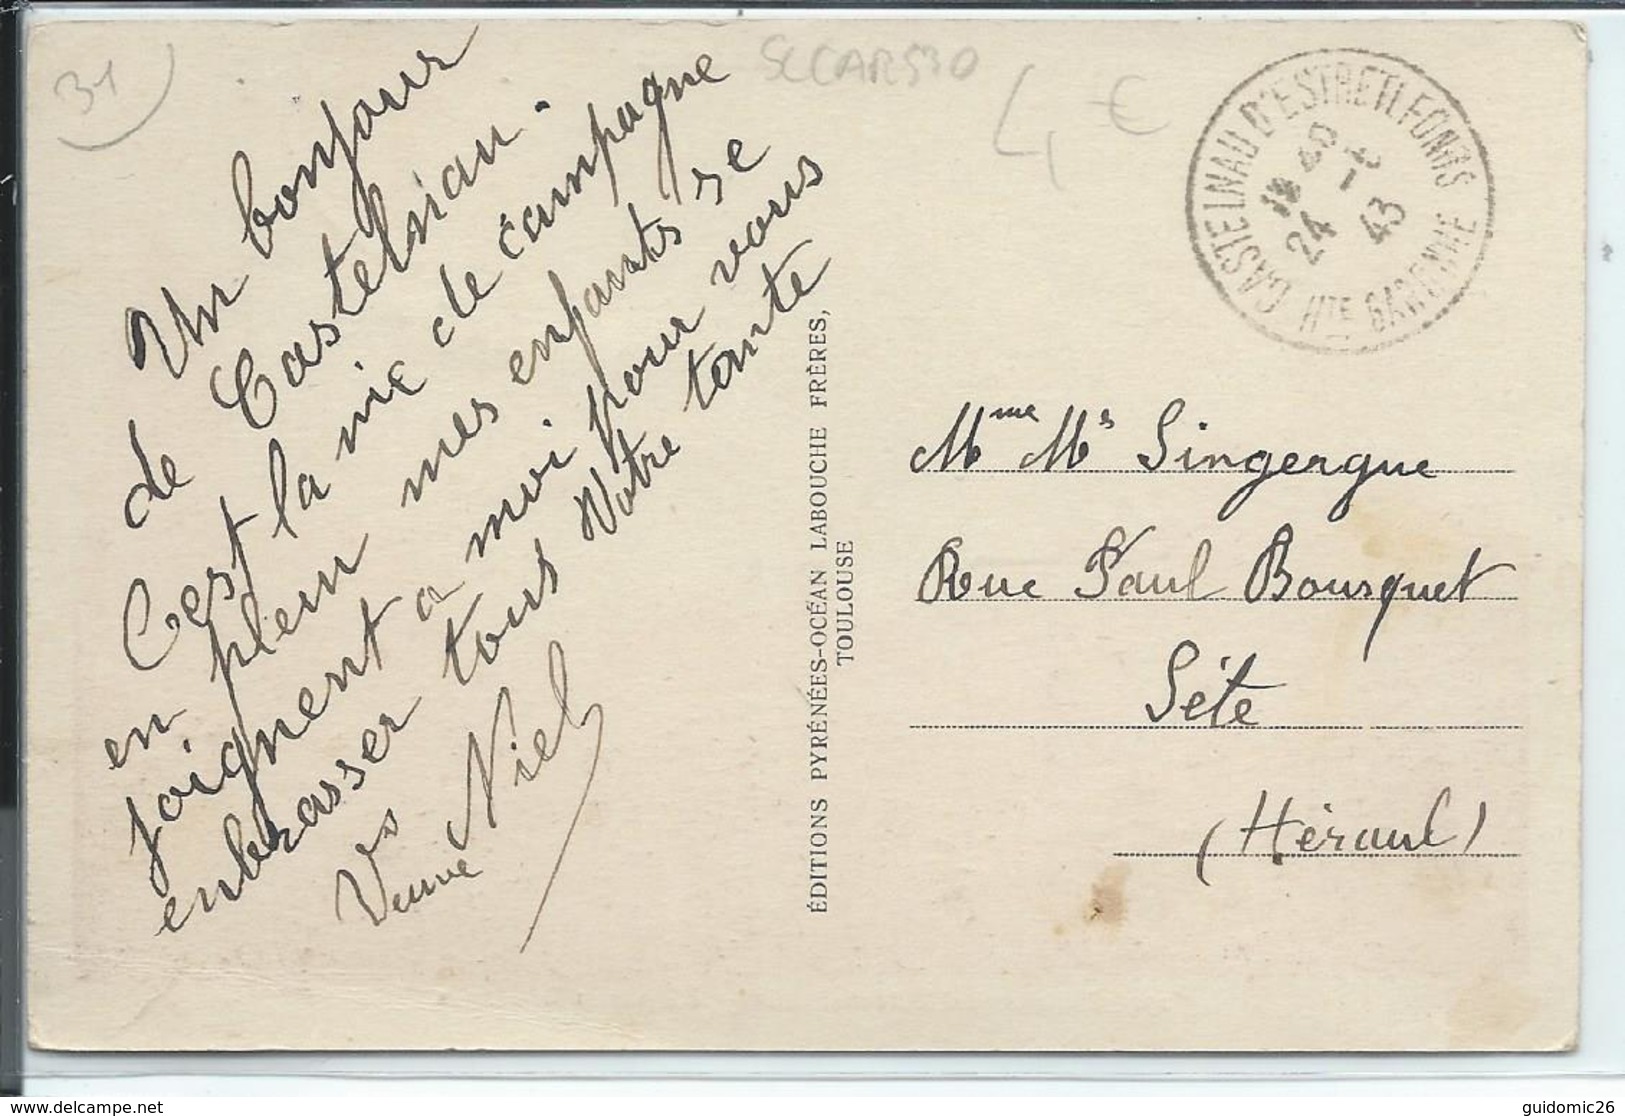 31
SCCAR530
4, €
Un bonjour
de Castelnau.
C'est la vie de campagne
en plein mes enfants se
joignent a moi pour vous
enbrasser tous Votre tante
Vs
Veuve Niel
ÉDITIONS PYRÉNÉES-OCÉAN LABOUCHE FRÈRES,
TOULOUSE
CASTELNAU D'ESTRETEFONDS
24 43
HTE GARONNE
Mme Ms Singergue
Rue Paul Bousquet
Séte
(Hérault)
guidomic26